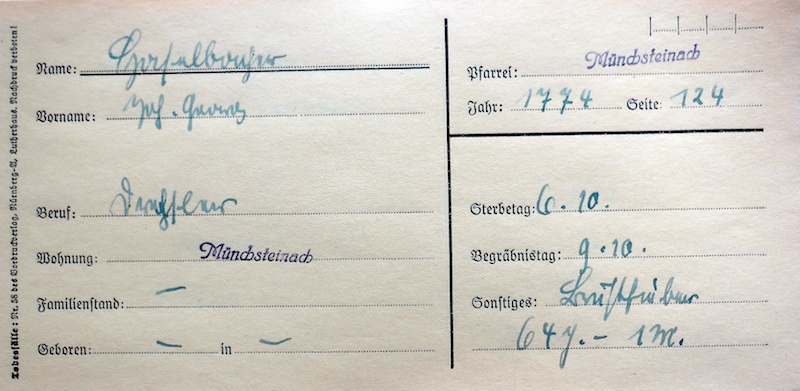 Todesfälle: Nr. 58 des Vordruckverlag, Nürnberg-A, Lutherhaus. Nachdruck verboten!
Name: Haselbacher
Vorname: Joh. Georg
Beruf: Drechsler
Wohnung: Münchsteinach
Familienstand: —
Geboren: — in —
Pfarrei: Münchsteinach
Jahr: 1774 Seite: 124
Sterbetag: 6.10.
Begräbnistag: 9.10.
Sonstiges: Brustfieber
64 J. - 1 M.